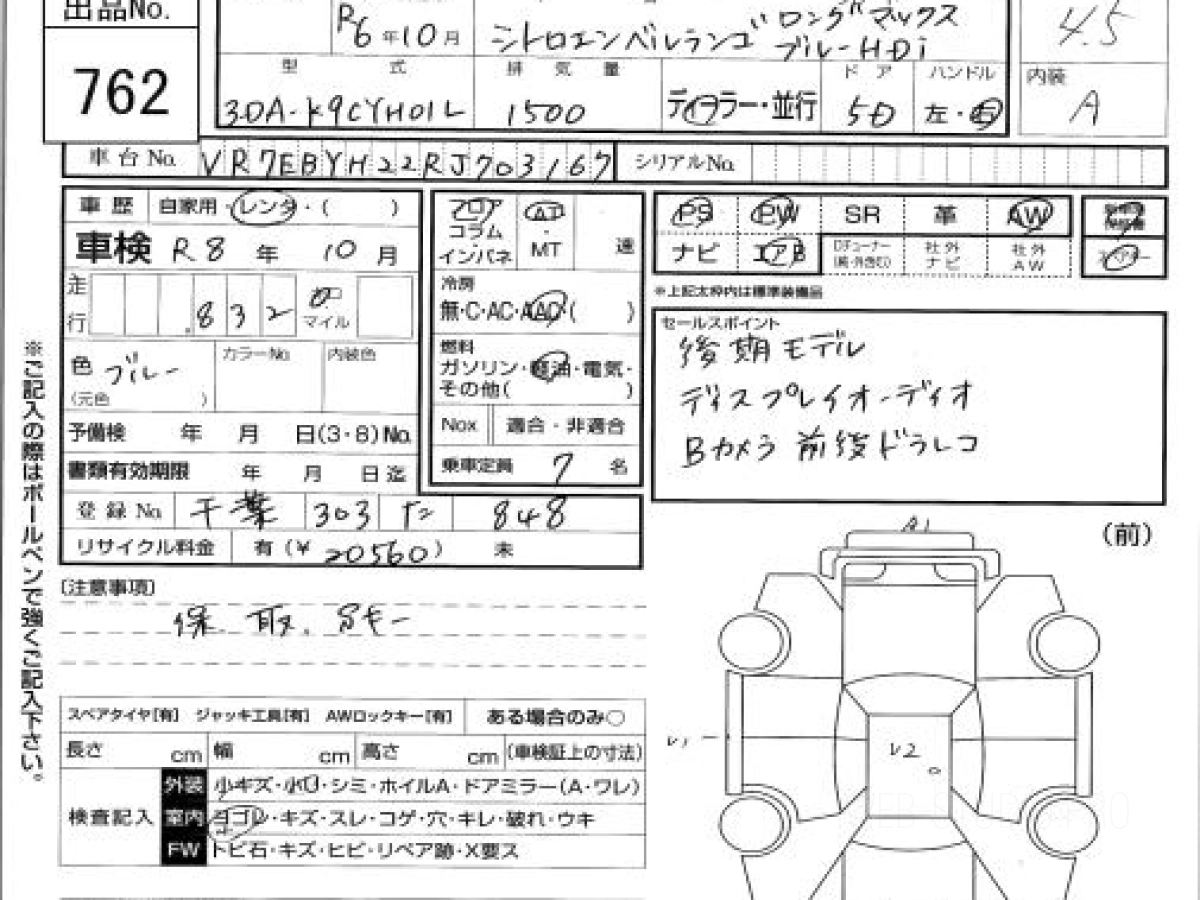 出品No.
762
R6年10月
シトロエンベルランゴ ロング マックス
ブルーHDi
4.5
型 式
排 気 量
ドア
ハンドル
内装
3DA-K9CYH01L
1500
ディーラー・並行
5D
左・右
A
車台No.
VR7EBYH22RJ703167
シリアルNo.
車歴
自家用・レンタ・( )
車検 R8年10月
走行
.832
マイル
色 ブルー
(元色 )
カラーNo.
内装色
予備検 年 月 日(3・8)No.
書類有効期限 年 月 日迄
登録No. 千葉 303 た 848
リサイクル料金 有(¥20560) 未
フロア
コラム
インパネ
AT
・
MT
速
冷房
無・C・AC・AAC( )
燃料
ガソリン・軽油・電気・
その他( )
Nox 適合・非適合
乗車定員 7 名
PS PW SR 革 AW
ナビ エアB
社外ナビ
社外AW
※上記太枠内は標準装備品
セールスポイント
後期モデル
ディスプレイオーディオ
Bカメラ 前後ドラレコ
[注意事項]
保. 取.
スペアタイヤ[有] ジャッキ工具[有] AWロックキー[有] ある場合のみ○
長さ cm 幅 cm 高さ cm (車検証上の寸法)
検査記入
外装 小キズ・小凹・シミ・ホイルA・ドアミラー(A・ワレ)
室内 ヨゴレ・キズ・スレ・コゲ・穴・キレ・破れ・ウキ
FW トビ石・キズ・ヒビ・リペア跡・X要ス
(前)
A1
U1
U2
※ご記入の際はボールペンで強くご記入下さい。